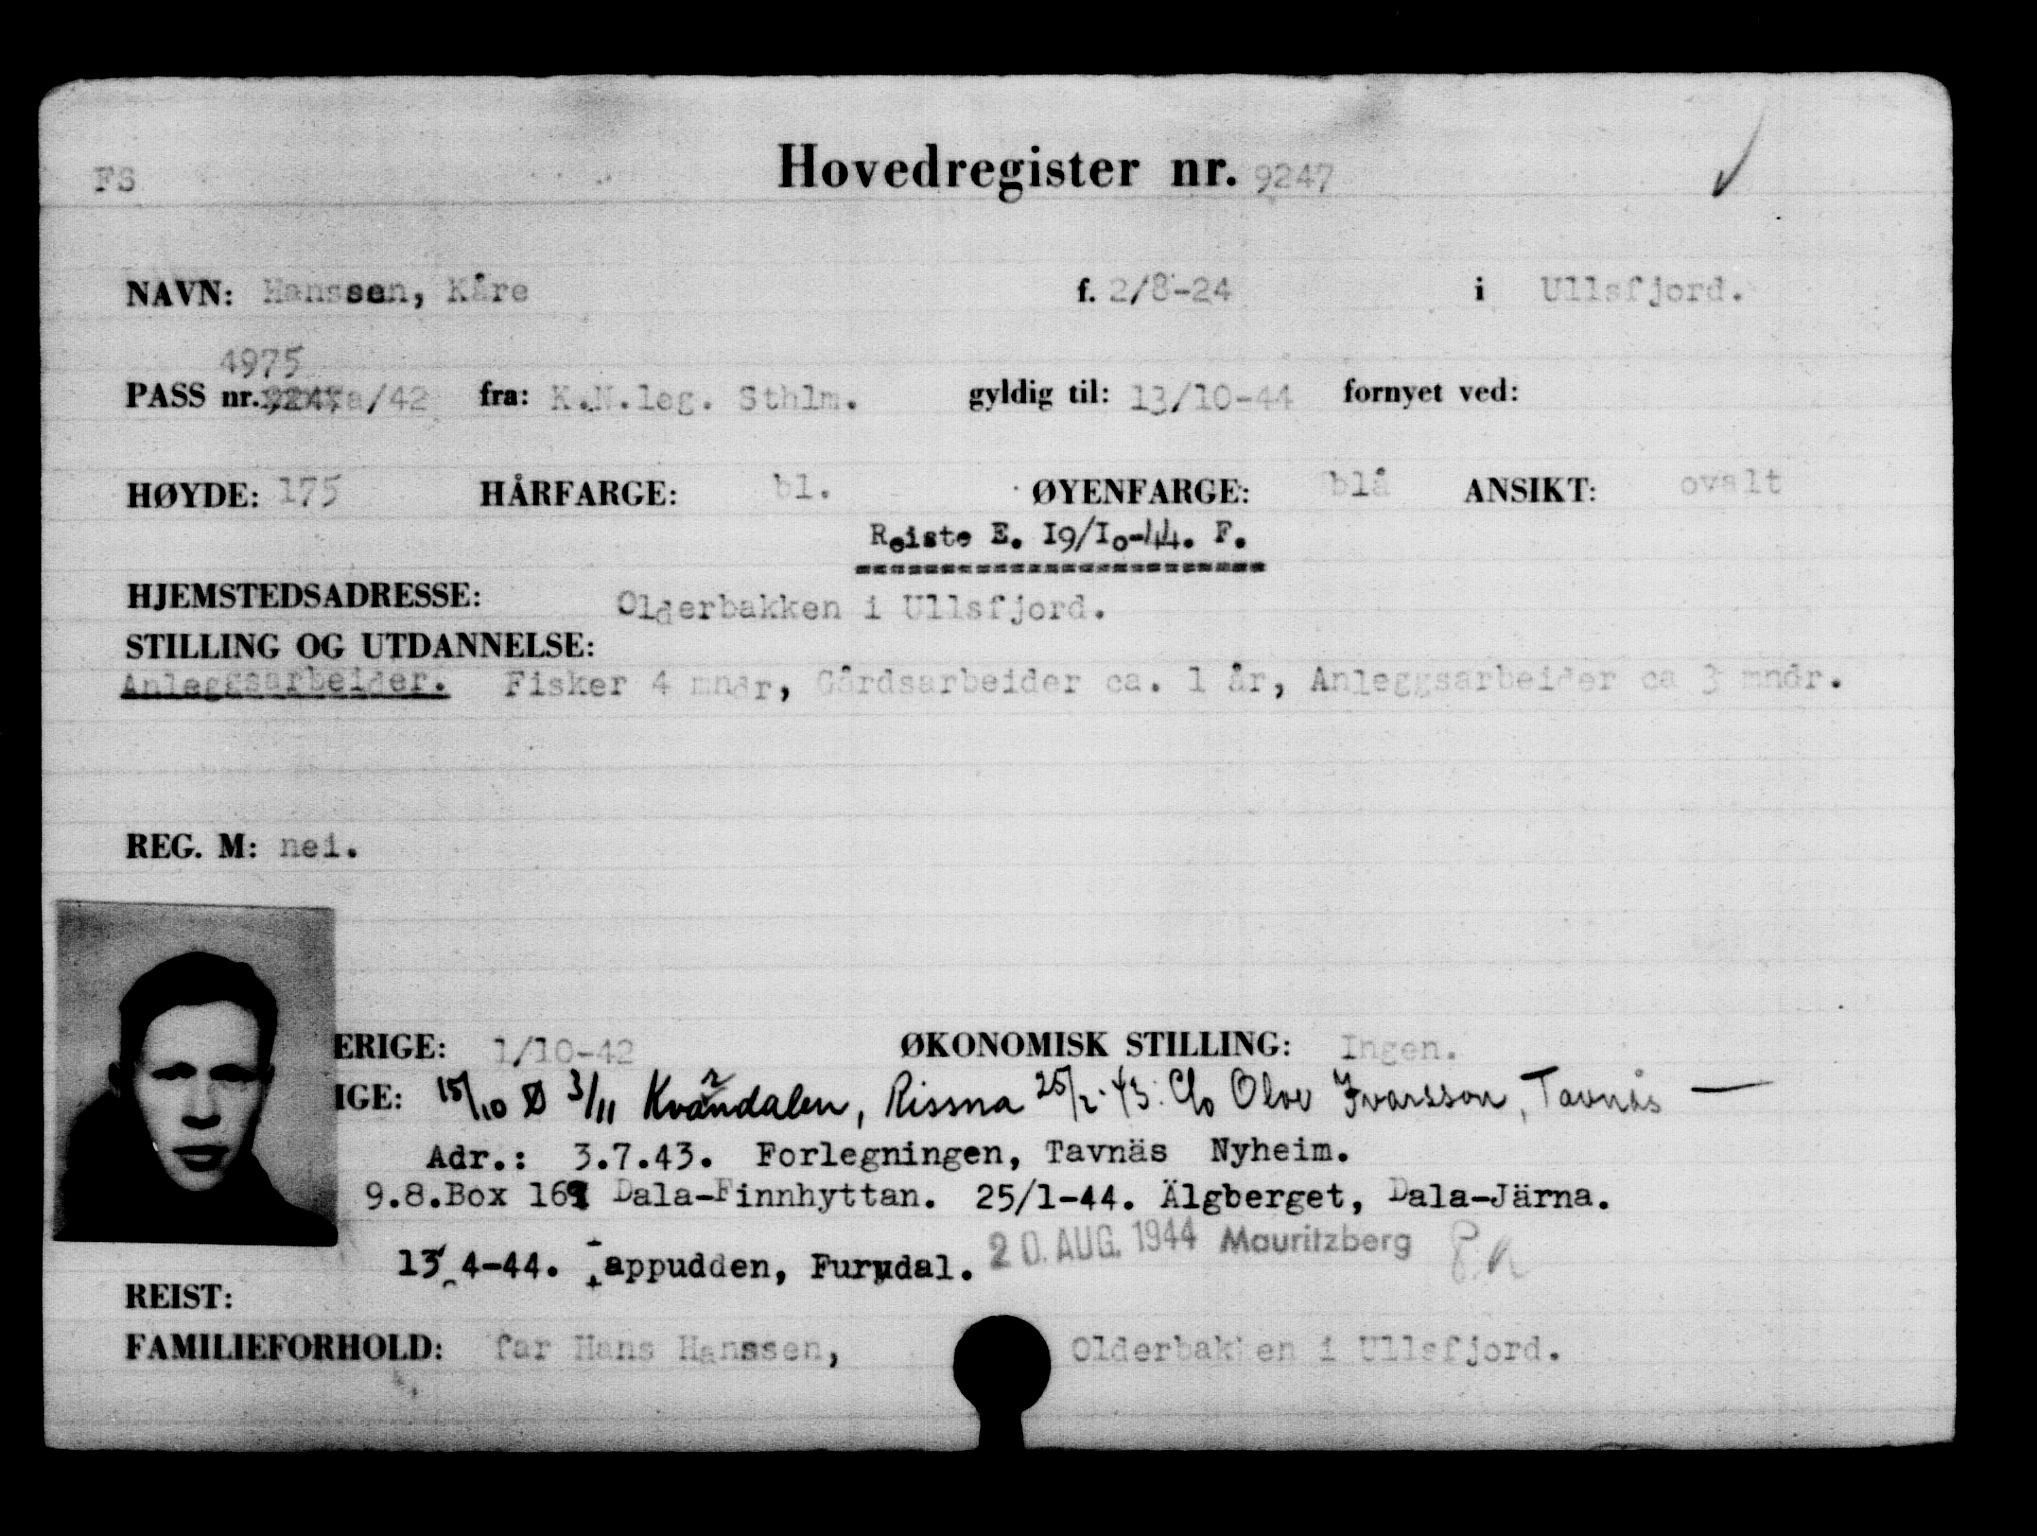 FS
Hovedregister nr. 9247
NAVN: Hanssen, Kåre f. 2/8-24 i Ullsfjord.
4975
PASS nr. 9247 a/42 fra: K.N.leg. Sthlm. gyldig til: 13/10-44 fornyet ved:
HØYDE: 175 HÅRFARGE: bl. ØYENFARGE: blå ANSIKT: ovalt
Reiste E. I9/Io-44. F.
HJEMSTEDSADRESSE: Olderbakken i Ullsfjord.
STILLING OG UTDANNELSE:
Anleggsarbeider. Fisker 4 mndr, Gårdsarbeider ca. 1 år, Anleggsarbeider ca 3 mndr.
REG. M: nei.
ERIGE: 1/10-42 ØKONOMISK STILLING: Ingen.
IGE: 15/10 Ø 3/11 Kvarndalen, Rissna 25/2-43: C/o Olov Ivarsson, Tavnäs —
Adr.: 3.7.43. Forlegningen, Tavnäs Nyheim.
9.8.Box 169 Dala-Finnhyttan. 25/1-44. Älgberget, Dala-Järna.
13 4-44. appudden, Furudal. 20. AUG. 1944 Mauritzberg
REIST:
FAMILIEFORHOLD: far Hans Hanssen, Olderbakken i Ullsfjord.